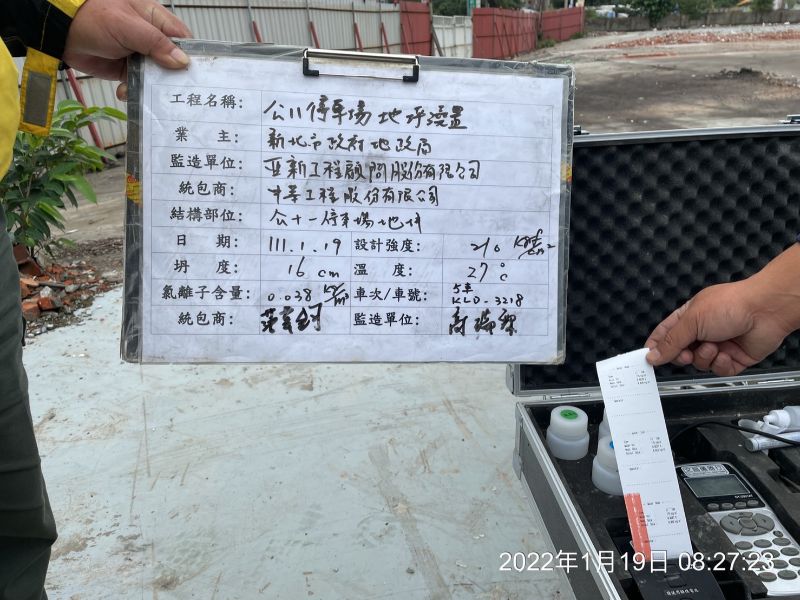 工程名稱: 公11停車場地坪澆置
業 主: 新北市政府地政局
監造單位: 亞新工程顧問股份有限公司
統包商: 中華工程股份有限公司
結構部位: 公十一停車場地坪
日 期: 111.1.19 設計強度: 210 kgf/cm²
坍 度: 16 cm 溫 度: 27°C
氯離子含量: 0.038 kg/m³ 車次/車號: 5車 KLD-3218
統包商: 監造單位:
2022年1月19日 08:27:23